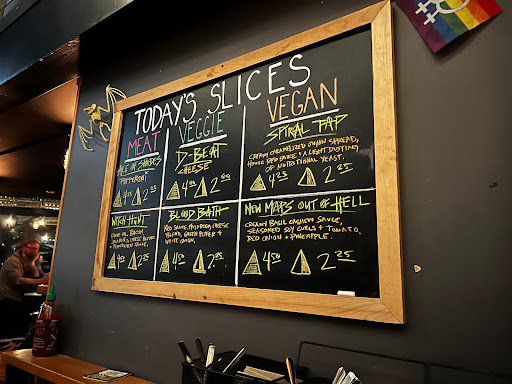 TODAY'S SLICES
MEAT
ACE OF SPADES
PEPPERONI
WITCH HUNT
VEGGIE
D-BEAT
CHEESE
4.00 2.00
BLOOD BATH
RED SAUCE, MOZZARELLA CHEESE
BLEND, GREEN PEPPER +
WHITE ONION.
4.50 2.25
VEGAN
SPIRAL TAP
CREAMY CARAMELIZED ONION SPREAD,
HOUSE RED SAUCE + A LIGHT DUSTING
OF NUTRITIONAL YEAST.
4.25 2.25
NEW MAPS OUT OF HELL
CREAMY BASIL CASHEW SAUCE,
SEASONED SOY CURLS + TOMATO,
RED ONION + PINEAPPLE.
4.50 2.25